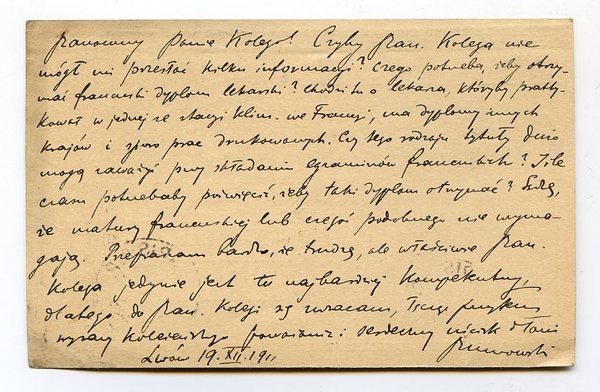 Szanowny Panie Kolego! Czyby Szan. Kolega nie
mógł mi przesłać kilku informacji? Czego potrzeba, żeby otrzy-
mać francuski dyplom lekarski? Chodzi tu o lekarza, któryby prakty-
kował w jednej ze stacyi klim. we Francyi, ma dyplomy innych
krajów i sporo prac drukowanych. Czy tego rodzaju tytuły dużo
mogą zaważyć przy składaniu egzaminów francuskich? Ile
czasu potrzebaby poświęcić, żeby taki dyplom otrzymać? Sądzę,
że matury francuskiej lub czegoś podobnego nie wyma-
gają. Przepraszam bardzo, że trudzę, ale właściwie Szan.
Kolega jedynie jest tu najbardziej kompetentny,
dlatego do Szan. Kolegi się zwracam, łącząc przytem
wyrazy koleżeńskiego poważania i serdeczny uścisk dłoni
Lwów 19.XII.1911